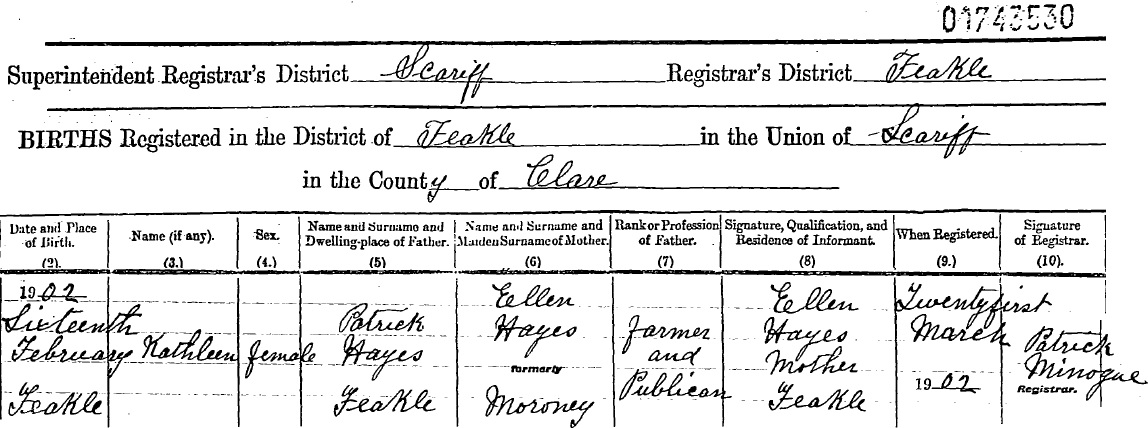 01743530
Superintendent Registrar's District Scariff Registrar's District Feakle
BIRTHS Registered in the District of Feakle in the Union of Scariff
in the County of Clare
Date and Place of Birth. (2). Name (if any). (3.) Sex. (4.) Name and Surname and Dwelling-place of Father. (5) Name and Surname and Maiden Surname of Mother. (6) Rank or Profession of Father. (7) Signature, Qualification, and Residence of Informant. (8) When Registered. (9.) Signature of Registrar. (10).
1902 Ellen Ellen Twentyfirst
Sixteenth Patrick Hayes Farmer Hayes March Patrick
February Kathleen female Hayes formerly and Mother Minogue
Feakle Feakle Moroney Publican Feakle 1902 Registrar.